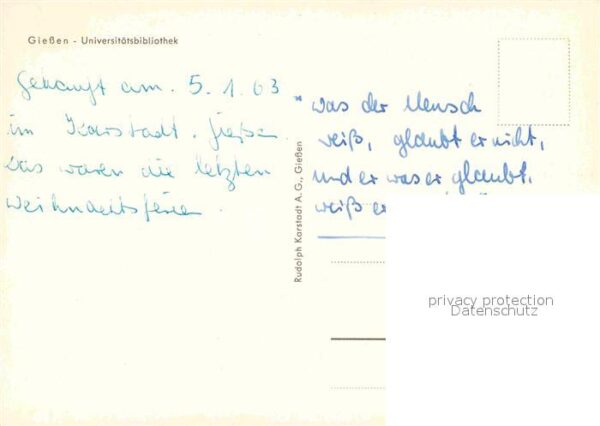 Gießen - Universitätsbibliothek
Gekauft am. 5. 1. 63
im Karstadt. Gießen.
Das waren die letzten
Weihnachtsferien.
Rudolph Karstadt A.G., Gießen
"was der Mensch
weiß, glaubt er nicht,
und er was er glaubt,
weiß er
privacy protection
Datenschutz